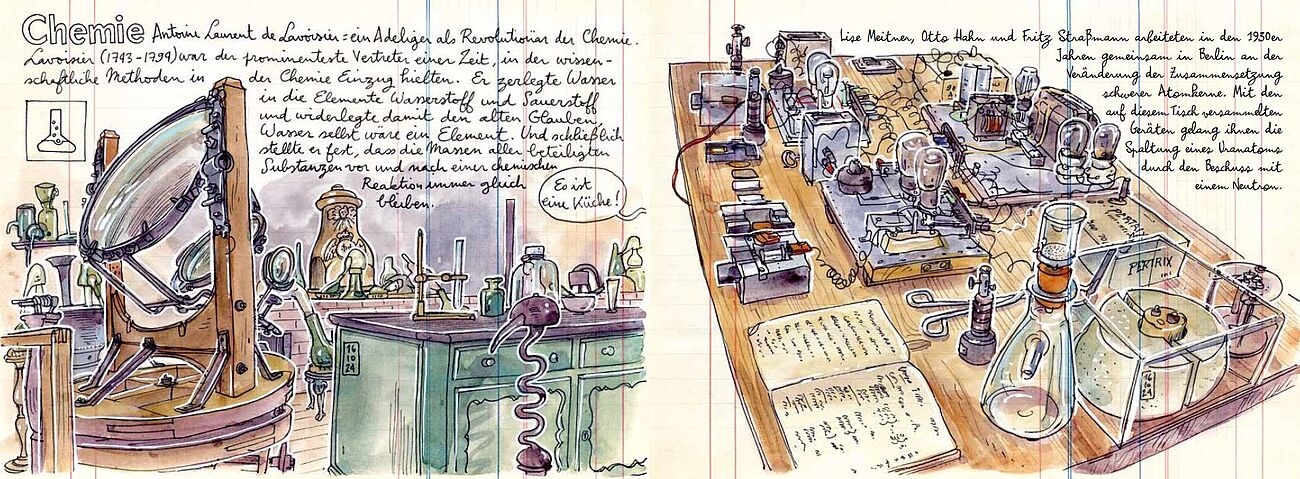 Chemie Antoine Laurent de Lavoisier = ein Adeliger als Revolutionär der Chemie.
Lavoisier (1743-1794) war der prominenteste Vertreter einer Zeit, in der wissen-
schaftliche Methoden in der Chemie Einzug hielten. Er zerlegte Wasser
in die Elemente Wasserstoff und Sauerstoff
und widerlegte damit den alten Glauben,
Wasser selbst wäre ein Element. Und schließlich
stellte er fest, dass die Massen aller beteiligten
Substanzen vor und nach einer chemischen
Reaktion immer gleich
bleiben.
Es ist
eine Küche!
16
10
24
Lise Meitner, Otto Hahn und Fritz Straßmann arbeiteten in den 1930er
Jahren gemeinsam in Berlin an der
Veränderung der Zusammensetzung
schwerer Atomkerne. Mit den
auf diesem Tisch versammelten
Geräten gelang ihnen die
Spaltung eines Uranatoms
durch den Beschuss mit
einem Neutron.
PERTRIX
PERTRIX
16
10
24